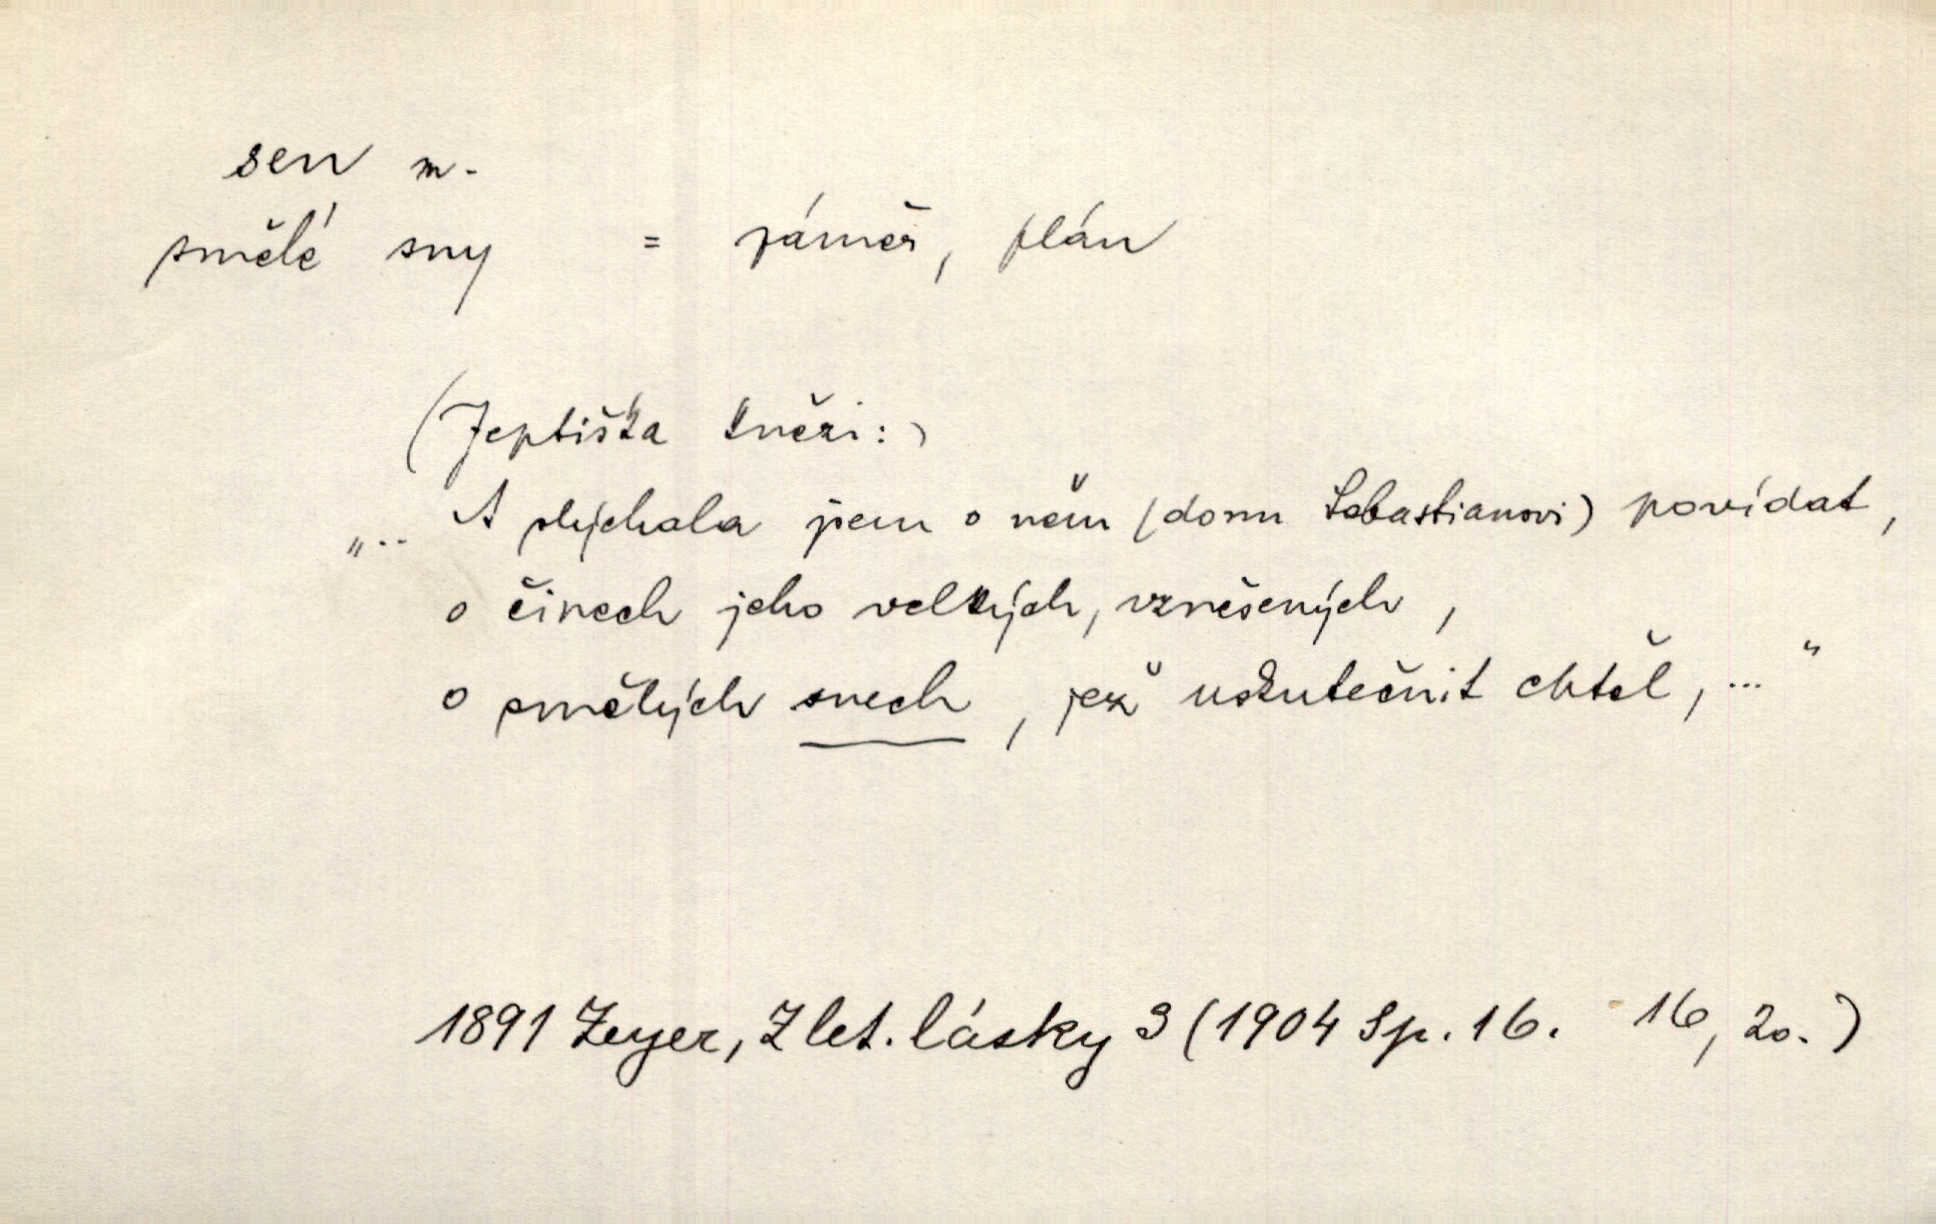 sen m.
smělé sny = záměr, plán
(Jeptiška knězi:)
„.. A slýchala jsem o něm (donu Sebastianovi) povídat,
o činech jeho velkých, vznešených,
o smělých snech, jež uskutečnit chtěl, ..."
1891 Zeyer, Z let. lásky 3 (1904 Sp. 16. 16, 20.)